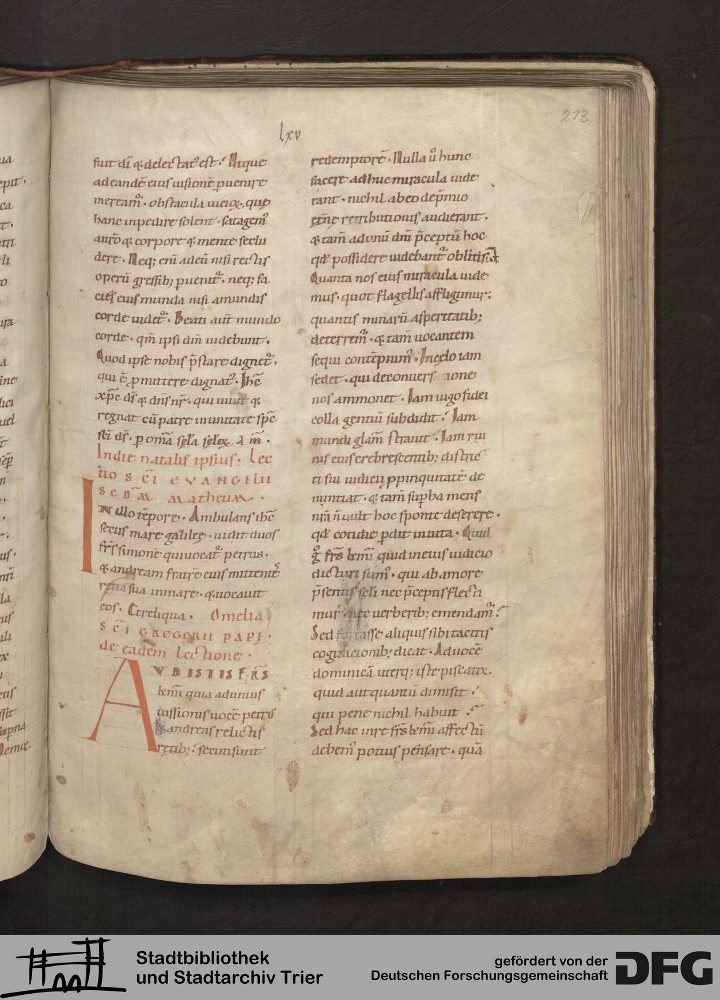 lxv
213
fuit di & delectat est. Atque
ad eande eius uisione puenire
meream. obstacula uicioꝝ. que
hanc inpedire solent. satagem
auro & corpore & mente seclu
dere. Neq; eni ad eu nisi rectis
operu gressib; puenit. neq; fa
cies eius munda nisi a mundis
corde uidet. Beati aut mundo
corde. qm ipsi dm uidebunt.
Quod ipse nobis pstare dignet.
qui e pmittere dignat. Ihc
xpc ds & dns nr. qui uiuit &
regnat cu patre in unitate spc
sci ds. p oma scla scloꝝ. am.
In die natalis ipsius. Lec
tio SCI EVANGELII
SCDM Matheum.
IN illo tepore. Ambulans ihc
secus mare galilee. uidit duos
frs simone qui uocat petrus.
& andream fratre eius mittentes
retia sua in mare. & uocauit
eos. Et reliqua. Omelia
SCI GREGORII PAPE.
de eadem Lectione.
AVDISTIS FRS
kmi quia ad unius
iussionis uoce petrus
& andreas relictis
retib; secuti sunt
redemptore. Nulla u hunc
facere adhuc miracula uide
rant. nichil ab eo de pmio
etne retributionis audierant.
& tam ad unu dni pceptu hoc
qd possidere uidebant obliti st.
Quanta nos eius miracula uide
mus. quot flagellis affligimur.
quantis minaru asperitatib;
deterrem. & tam uocantem
sequi contepnim. In celo iam
sedet. qui de conuersione
nos ammonet. Iam iugo fidei
colla gentiu subdidit. Iam
mundi glam strauit. Iam rui
nis eius crebrescentib; distric
ti sui iudicii ppinquitate de
nuntiat. & tam supba mens
nra n uult hoc sponte deserere.
qd cotidie pdit inuita. Quid
g frs kmi quid in eius iudicio
dicturi sum. qui ab amore
psentis scli nec pceptis flecti
mur. nec uerberib; emendam?
Sed fortasse aliquis sibi tacitis
cogitacionib; dicat. Ad uoce
dominica uterq; iste piscatoꝝ.
quid aut quantu dimisit.
qui pene nichil habuit.
Sed hac in re frs kmi affectu
debem potius pensare. qua
Stadtbibliothek
und Stadtarchiv Trier
gefördert von der
Deutschen Forschungsgemeinschaft
DFG